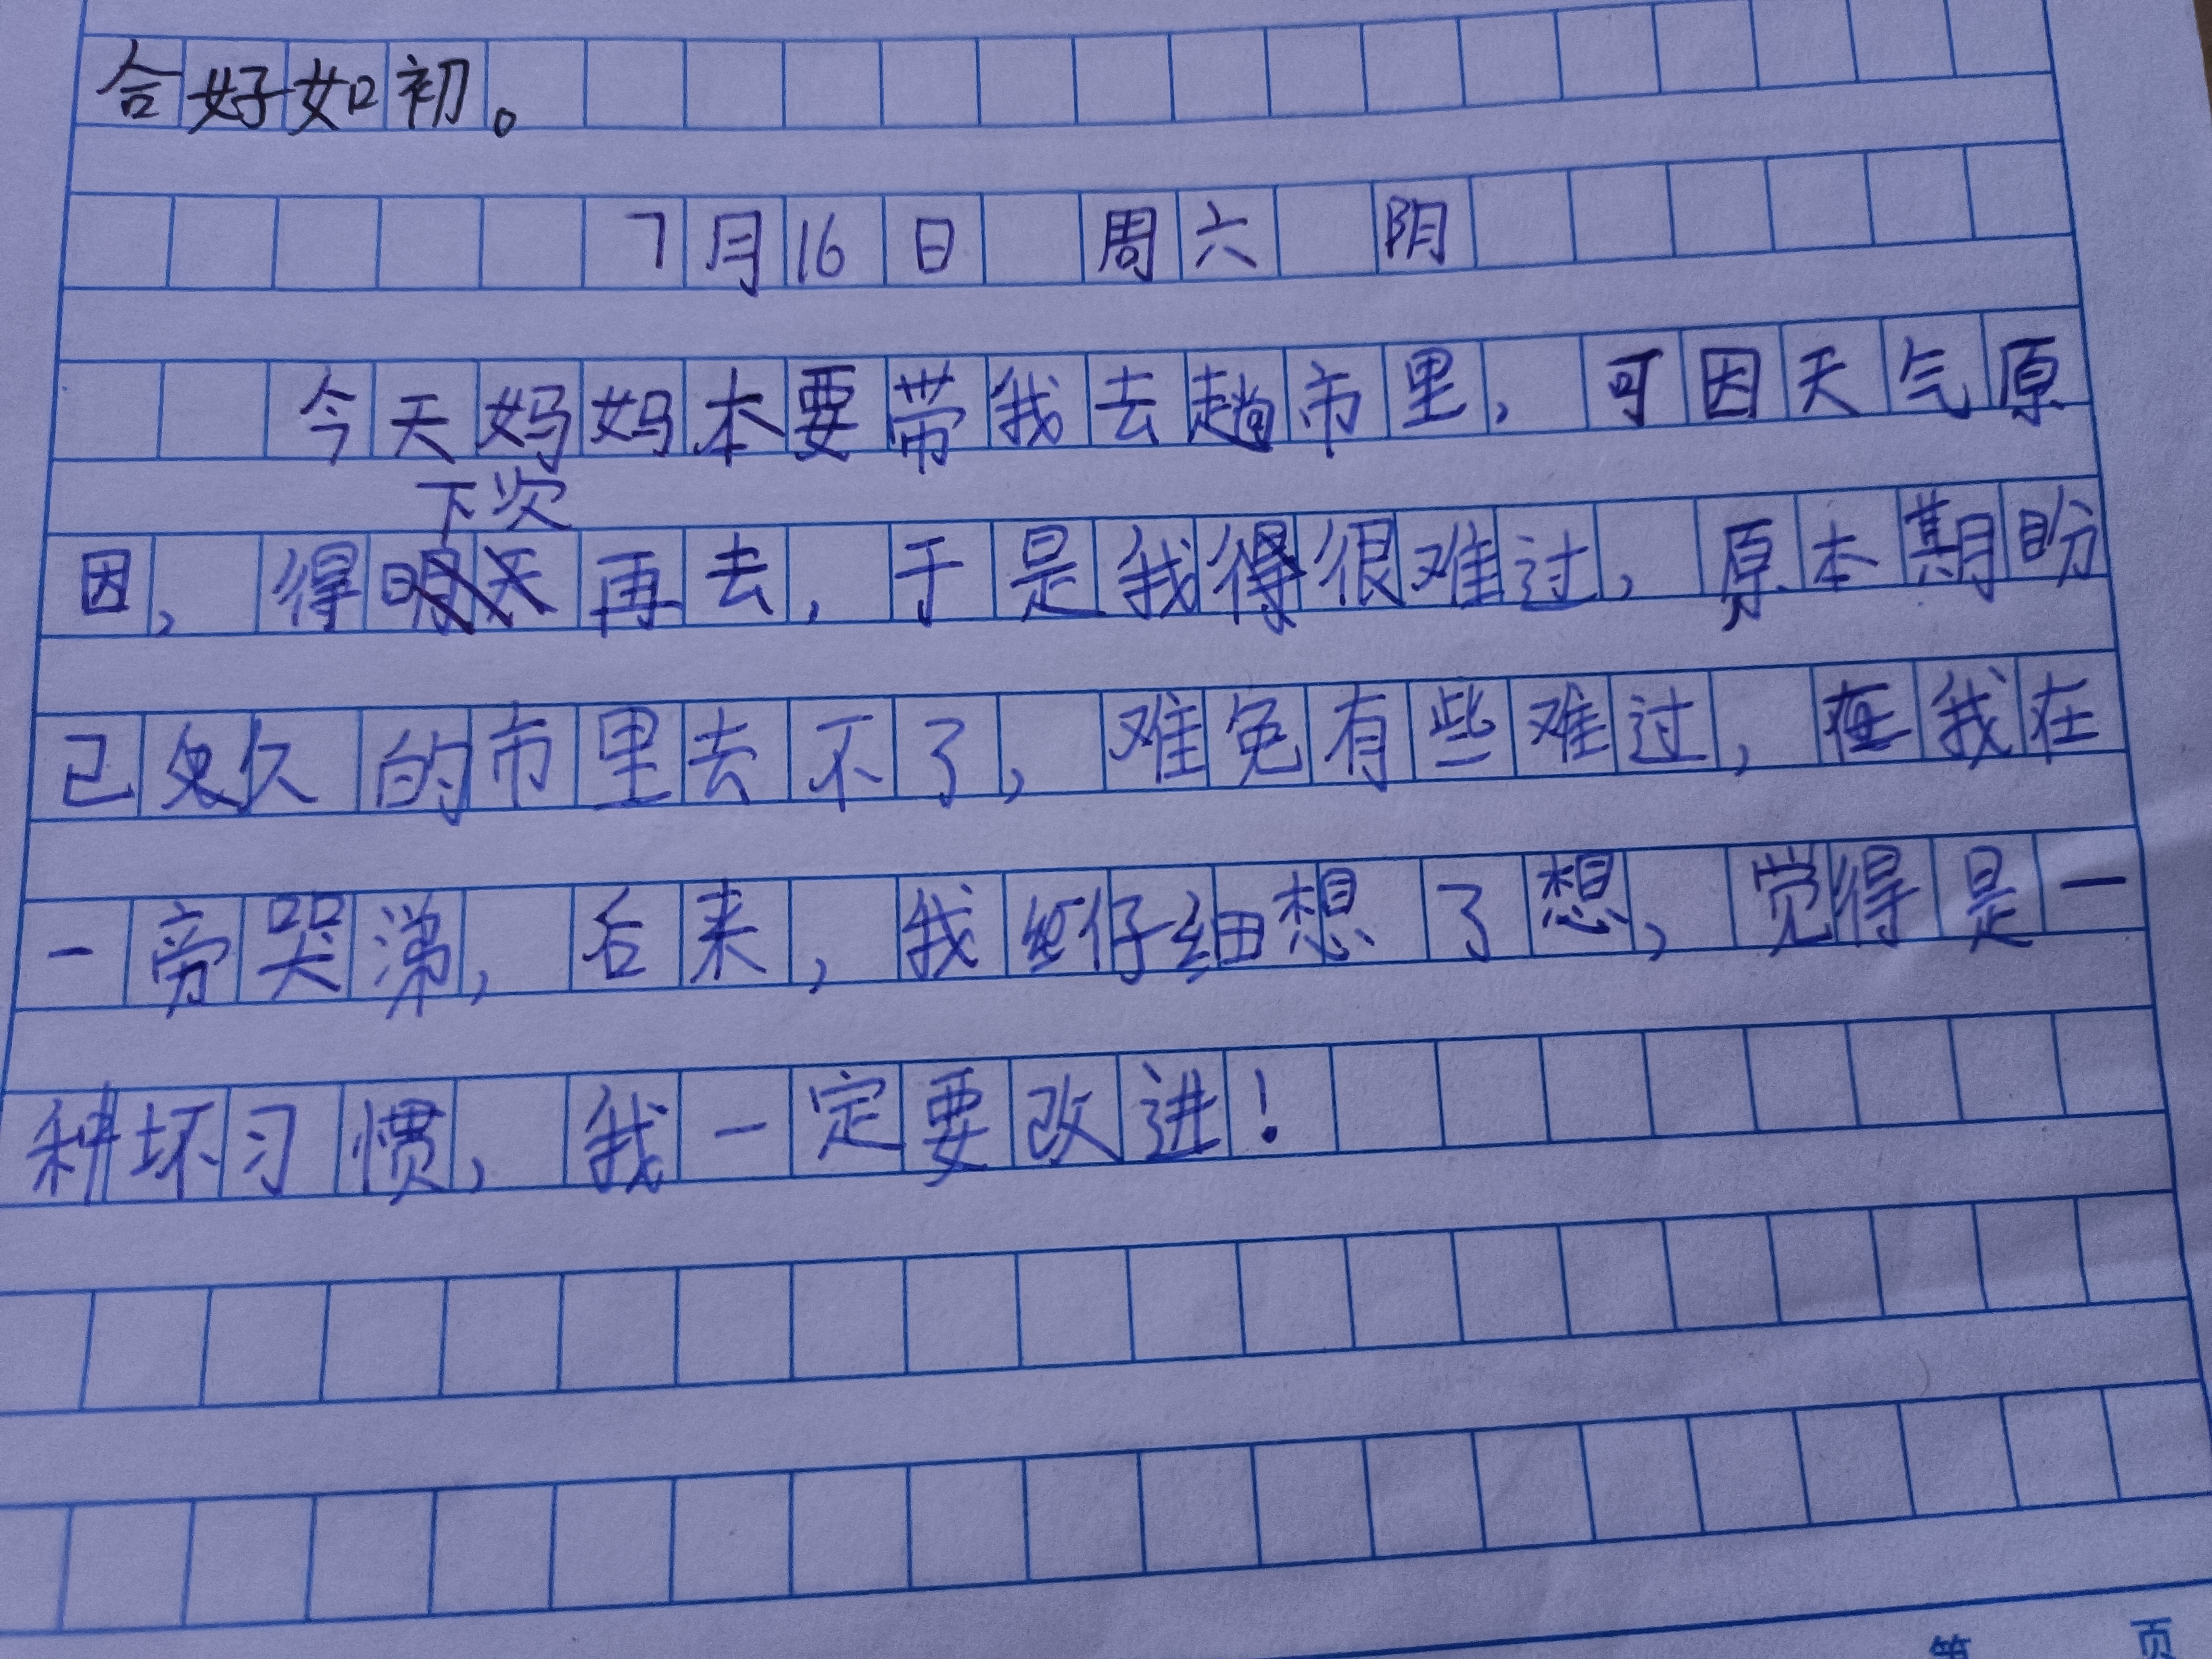 合好如初。
7月16日 周六 阴
今天妈妈本要带我去趟市里，可因天气原
下次
因，得再去，于是我很难过，原本期盼
已久的市里去不了，难免有些难过，我在
一旁哭涕，后来，我仔细想了想，觉得是一
种坏习惯，我一定要改进！
第 页